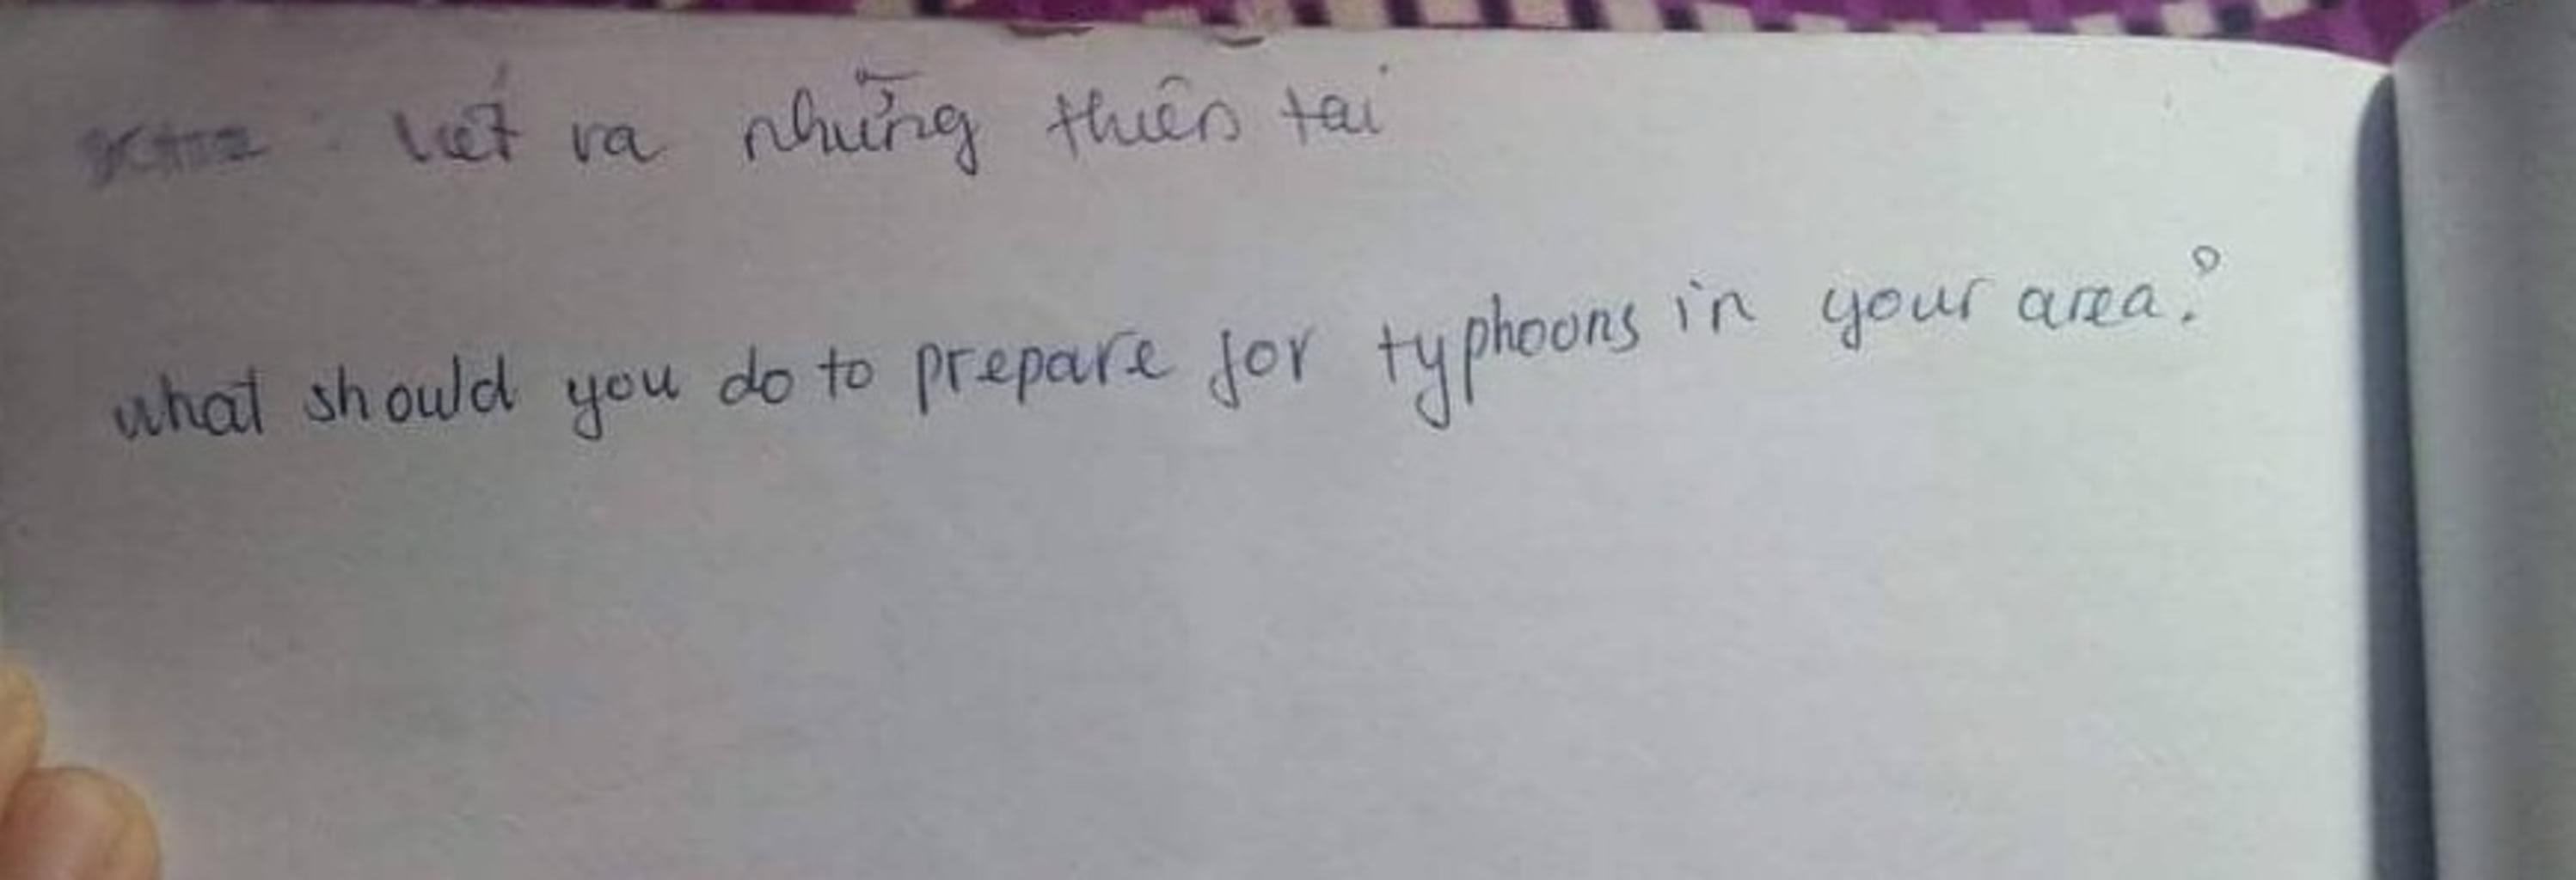 : viết ra những thiên tai
what should you do to prepare for typhoons in your area?